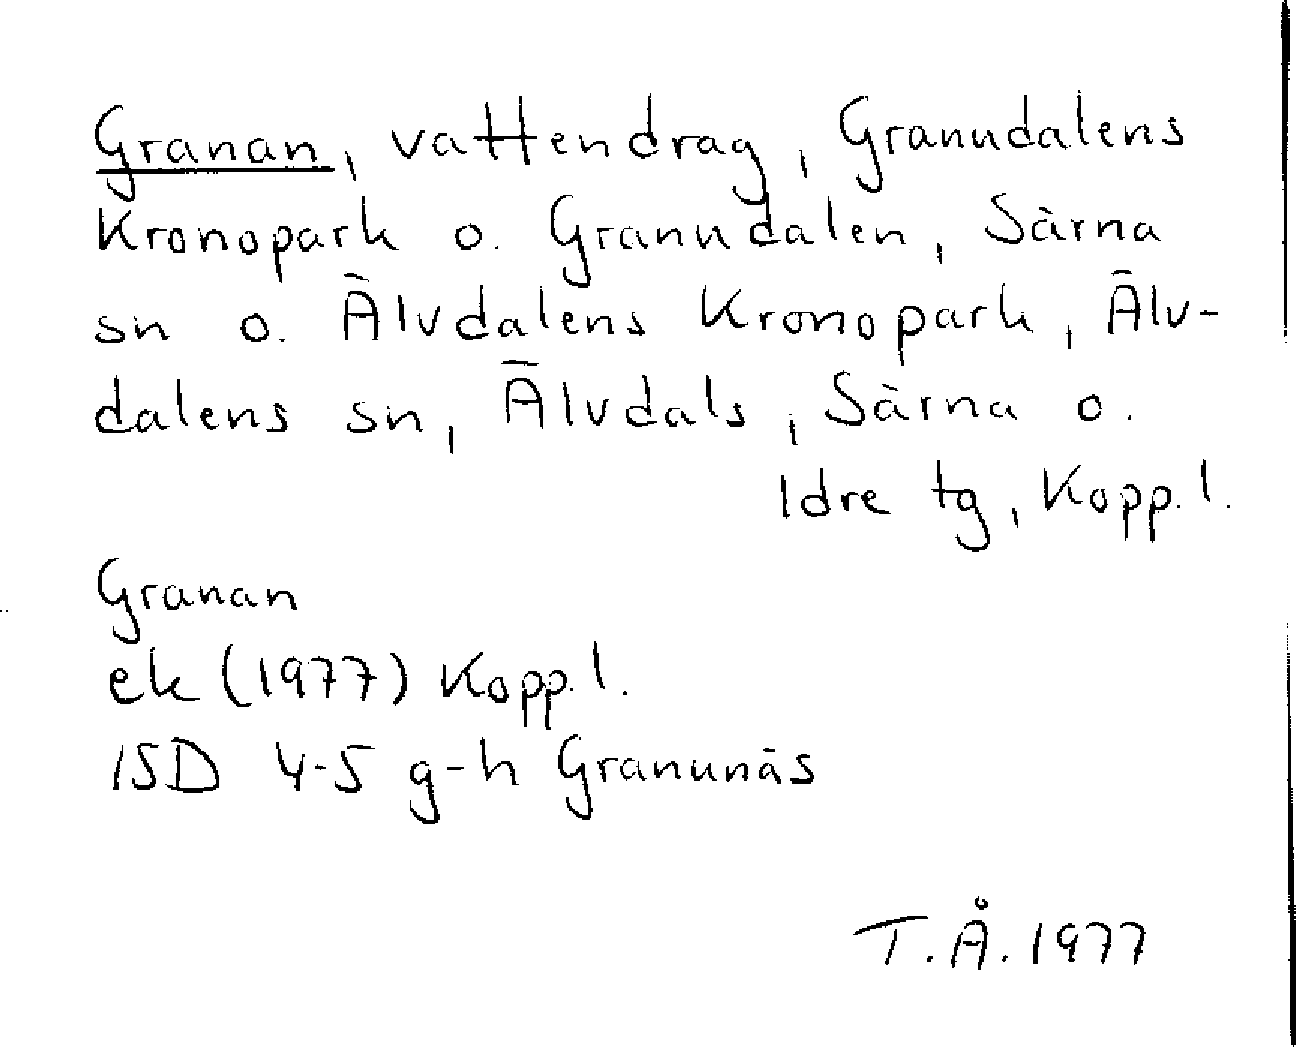 Granan, vattendrag, Granudalens
Kronopark o. Granudalen, Särna
sn o. Älvdalens Kronopark, Älv-
dalens sn, Älvdals, Särna o.
Idre tg, Kopp.l.
Granan
ek (1977) Kopp.l.
15D 4-5 g-h Granunäs
T.Å. 1977